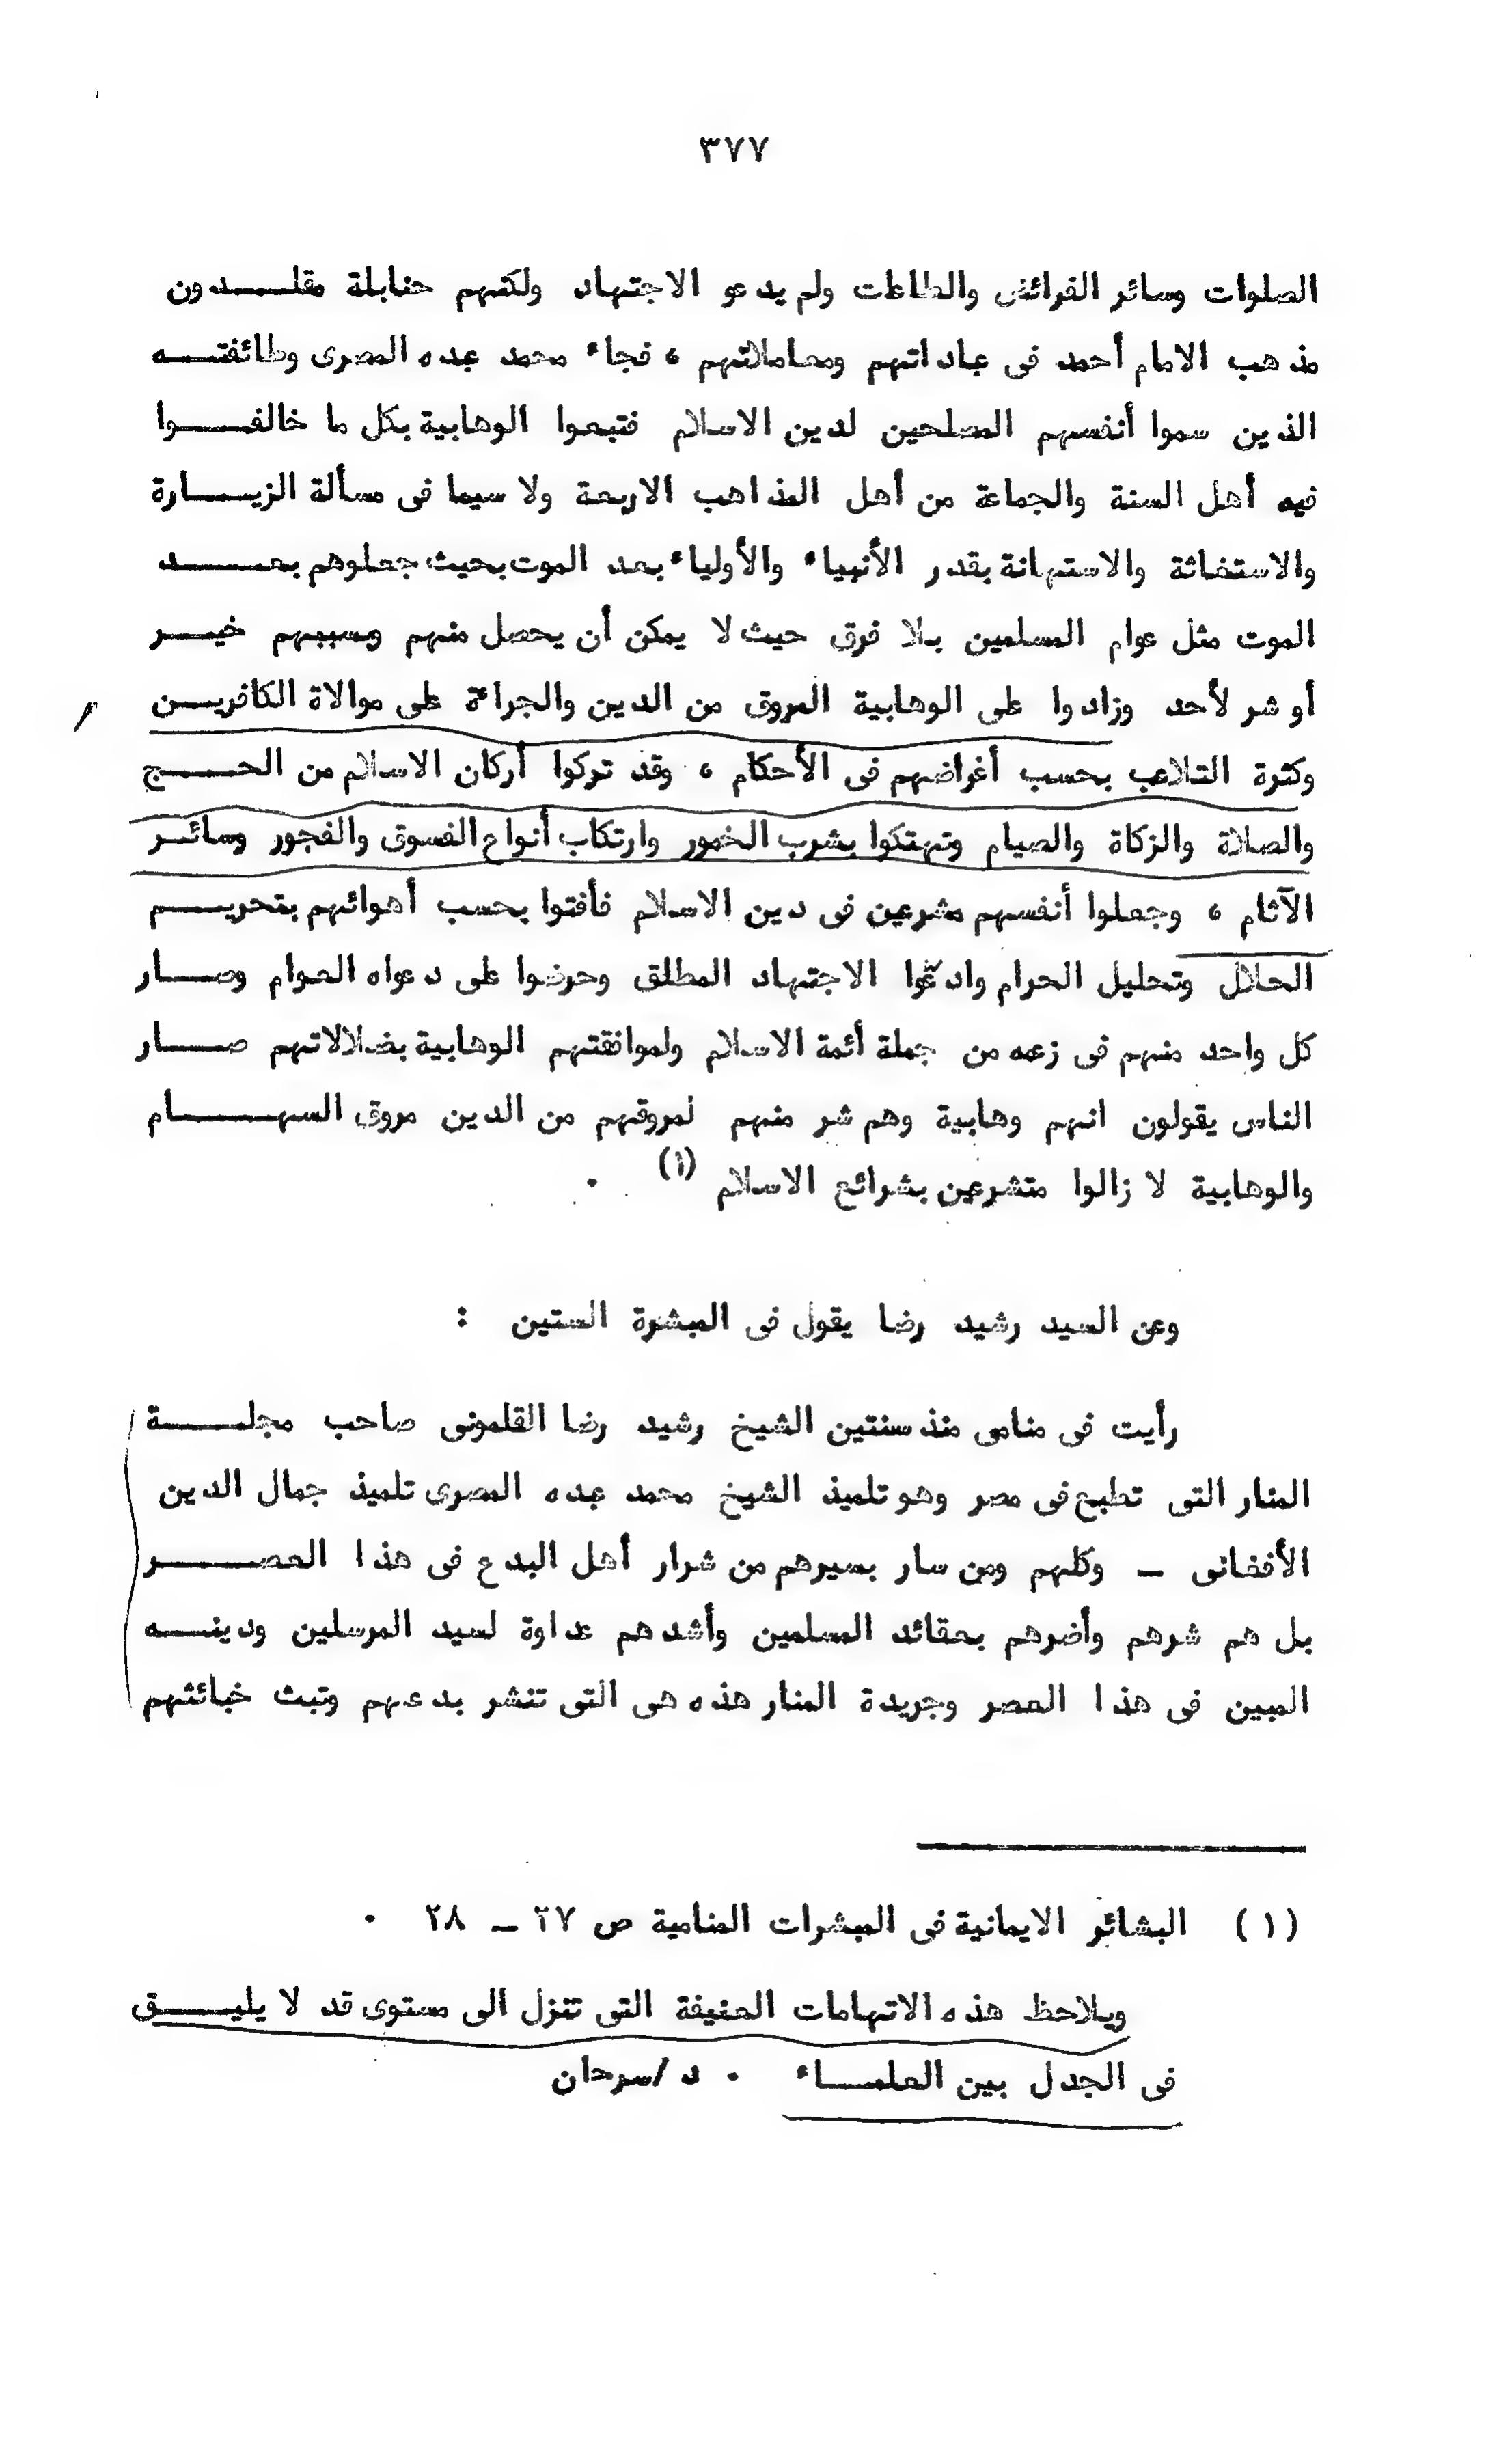 ٣٧٧
الصلوات وسائر الفرائض والطاعات ولم يدعو الاجتهاد ولكنهم حنابلة مقلـــدون
مذهب الامام أحمد فى عباداتهم ومعاملاتهم ، فجاء محمد عبده المصرى وطائفتـــه
الذين سموا أنفسهم المصلحين لدين الاسلام فتبعوا الوهابية بكل ما خالفـــوا
فيه أهل السنة والجماعة من أهل المذاهب الاربعة ولا سيما فى مسألة الزيـــارة
والاستغاثة والاستهانة بقدر الأنبياء والأولياء بعد الموت بحيث جعلوهم بعـــد
الموت مثل عوام المسلمين بلا فرق حيث لا يمكن أن يحصل منهم وبسببهم خيـــر
أو شر لأحد وزادوا على الوهابية المروق من الدين والجراءة على موالاة الكافريـــن
وكثرة التلاعب بحسب أغراضهم فى الأحكام ، وقد تركوا أركان الاسلام من الحـــج
والصلاة والزكاة والصيام وتهتكوا بشرب الخمور وارتكاب أنواع الفسوق والفجور وسائـــر
الآثام ، وجعلوا أنفسهم مشرعين فى دين الاسلام فأفتوا بحسب أهوائهم بتحريـــم
الحلال وتحليل الحرام وادعوا الاجتهاد المطلق وحرضوا على دعواه العوام وصـــار
كل واحد منهم فى زعمه من جملة أئمة الاسلام ولموافقتهم الوهابية بضلالاتهم صـــار
الناس يقولون انهم وهابية وهم شر منهم لمروقهم من الدين مروق السهـــام
والوهابية لا زالوا متشرعين بشرائع الاسلام (١) .
وعن السيد رشيد رضا يقول فى المبشرة الستين :
رأيت فى منامى منذ سنتين الشيخ رشيد رضا القلمونى صاحب مجلـــة
المنار التى تطبع فى مصر وهو تلميذ الشيخ محمد عبده المصرى تلميذ جمال الدين
الأفغانى ـ وكلهم ومن سار بسيرهم من شرار أهل البدع فى هذا العصـــر
بل هم شرهم وأضرهم بعقائد المسلمين وأشدهم عداوة لسيد المرسلين ودينـــه
المبين فى هذا العصر وجريدة المنار هذه هى التى تنشر بدعهم وتبث خبائثهم
(١) البشائر الايمانية فى المبشرات المنامية ص ٢٧ ـ ٢٨ .
ويلاحظ هذه الاتهامات العنيفة التى تنزل الى مستوى قد لا يليـــق
فى الجدل بين العلمـــاء . د/سرحان